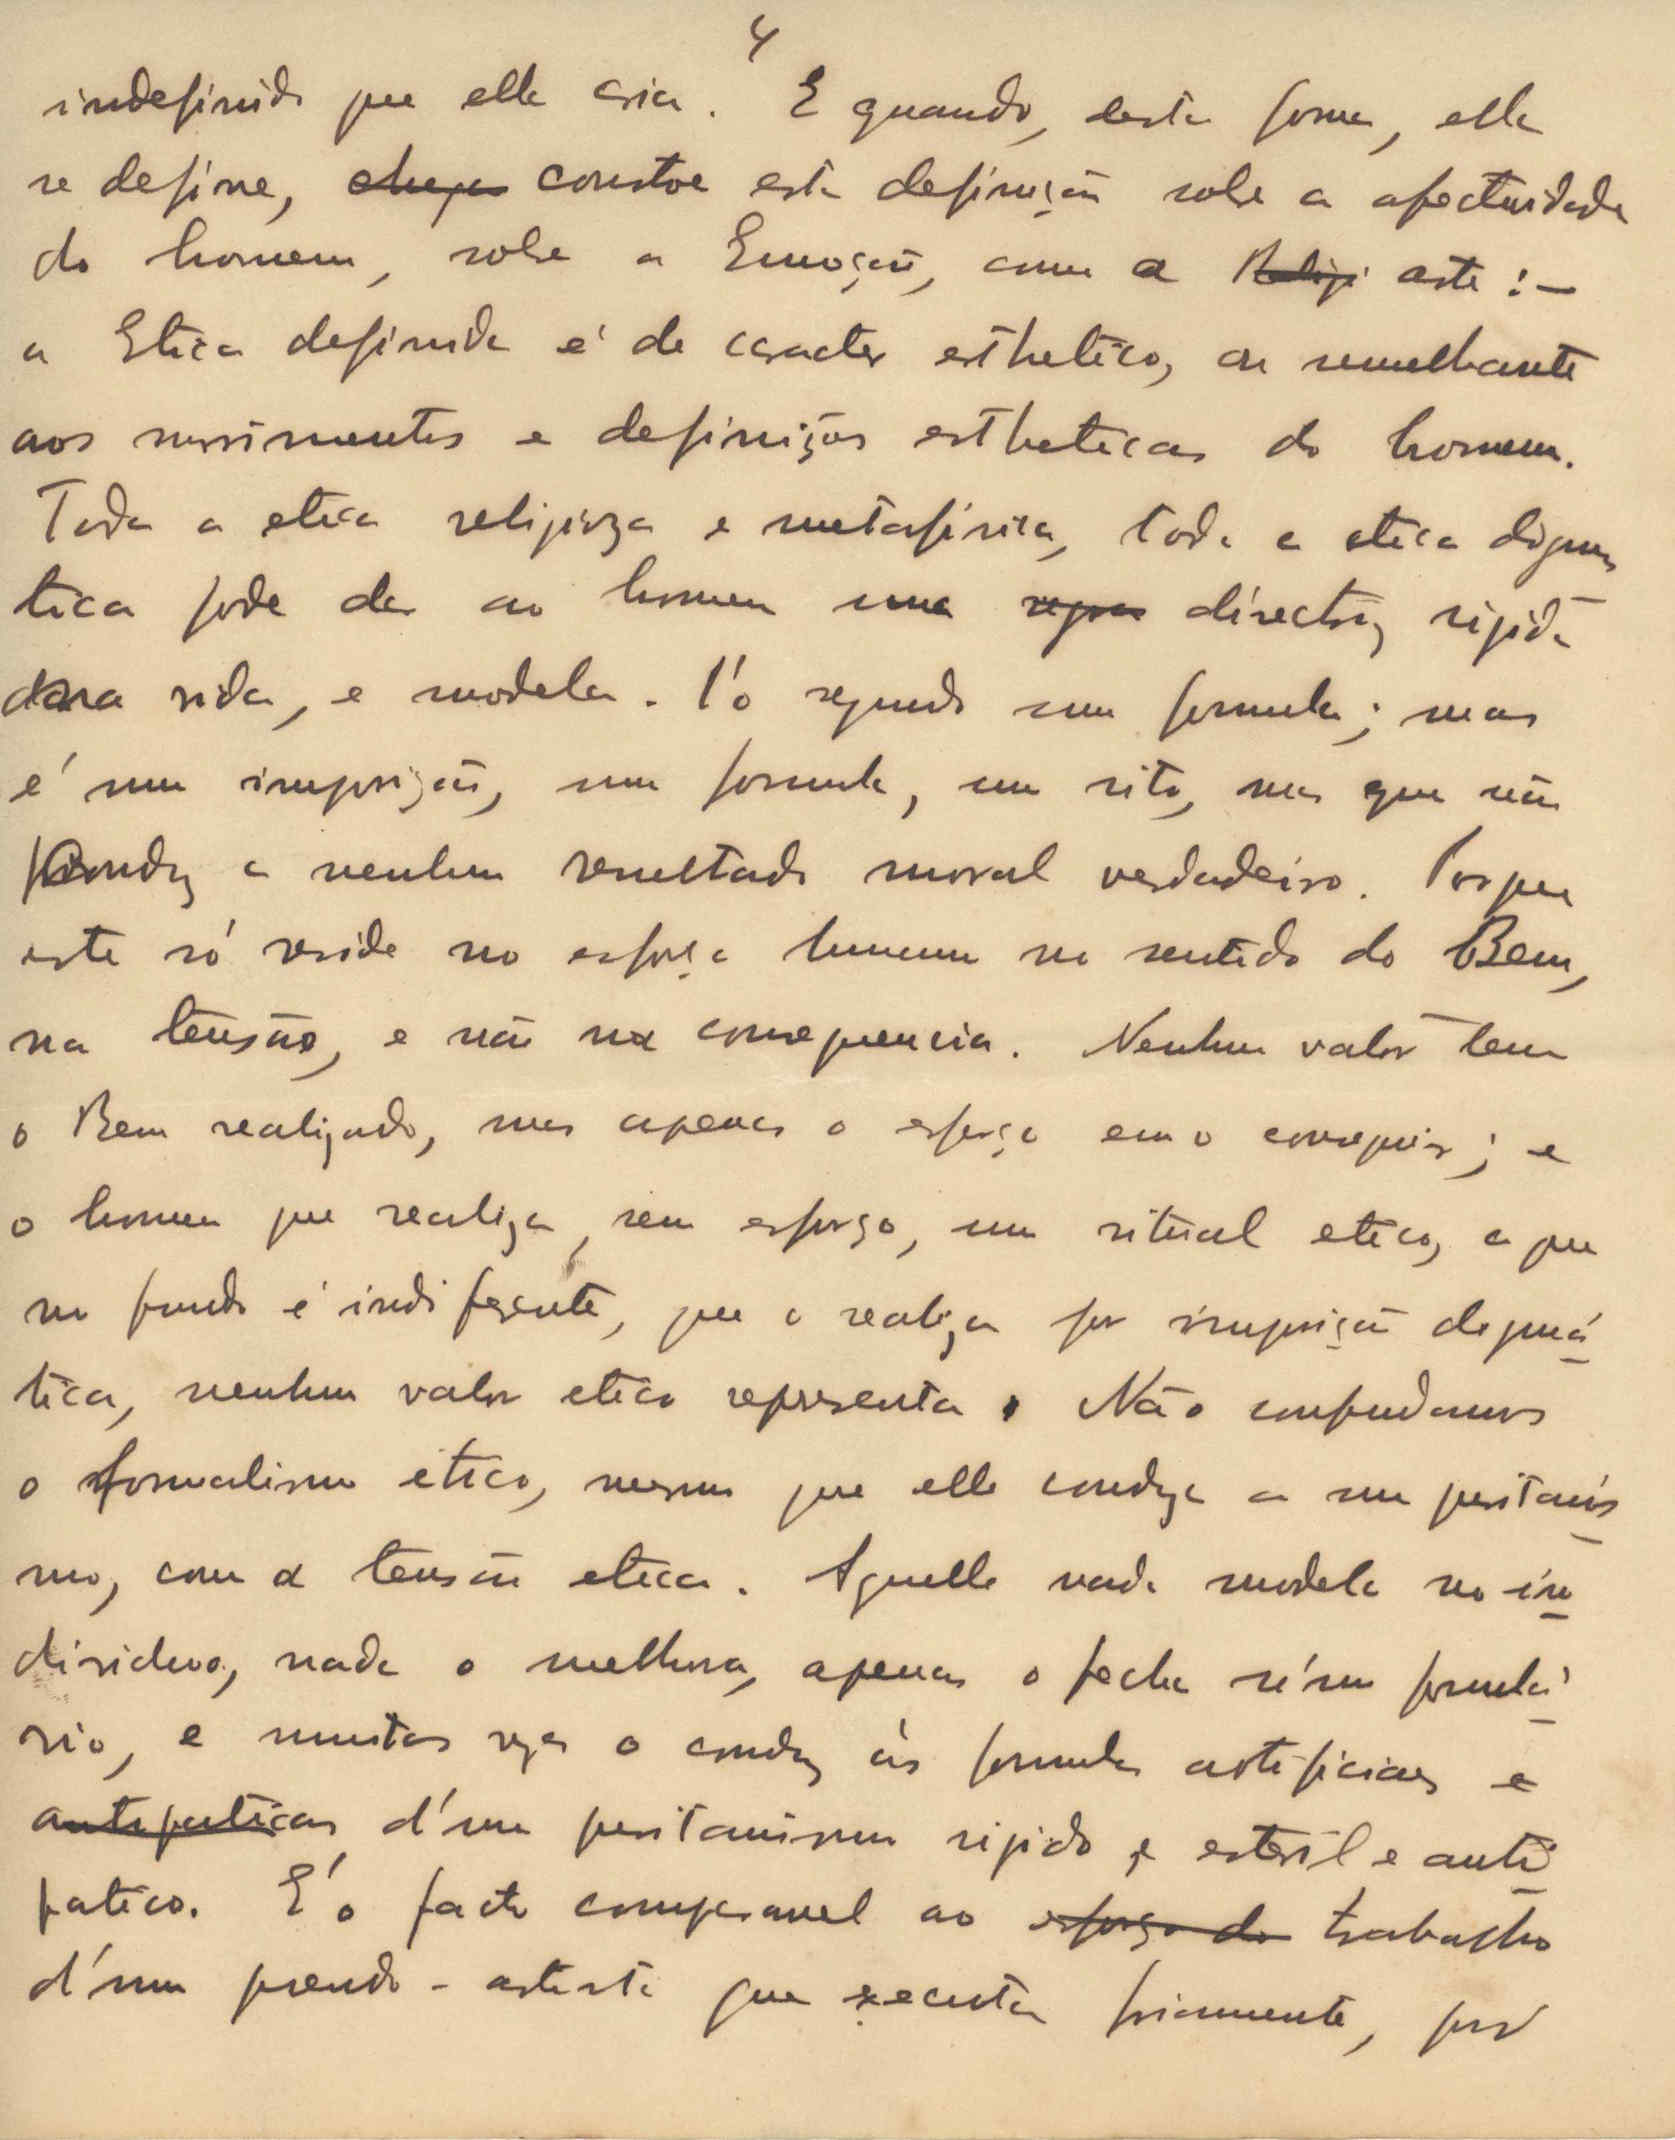 4
indefinido que elle cria. E quando, desta forma, elle
se define, chega constroe esta definição sobre a afectividade
do homem, sobre a Emoção, como a Religi arte:—
a Etica definida é de caracter esthetico, ou semelhante
aos movimentos e definições estheticas do homem.
Toda a etica religioza e metafisica, toda a etica dogma
tica pode dar ao homem uma regra directriz rigida
para vida, e modela-l'o segundo uma formula; mas
é uma imposição, uma formula, um rito, mas que não
conduz a nenhum resultado moral verdadeiro. Porque
este só reside no esforço humano no sentido do Bem,
na tensão, e não na consequencia. Nenhum valor tem
o Bem realizado, mas apenas o esforço em o conseguir; e
o homem que realiza, sem esforço, um ritual etico, a que
no fundo é indiferente, que o realiza por imposição dogmá
tica, nenhum valor etico representa. Não confundamos
o formalismo etico, mesmo que elle conduza a um puritanis
mo, com a tensão etica. Aquelle nada modela no in
dividuo, nada o melhora, apenas o fecha n'um formulá
rio, e muitas vezes o conduz ás formulas artificiaes e
antipaticas d'um puritanismo rigido e esteril e anti
patico. E' o facto comparavel ao esforço do trabalho
d'um pseudo-artista que executa friamente, por